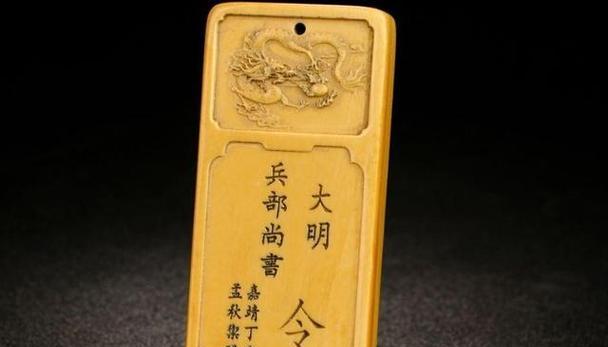 大明
兵部尚書
令
嘉靖丁
孟秋